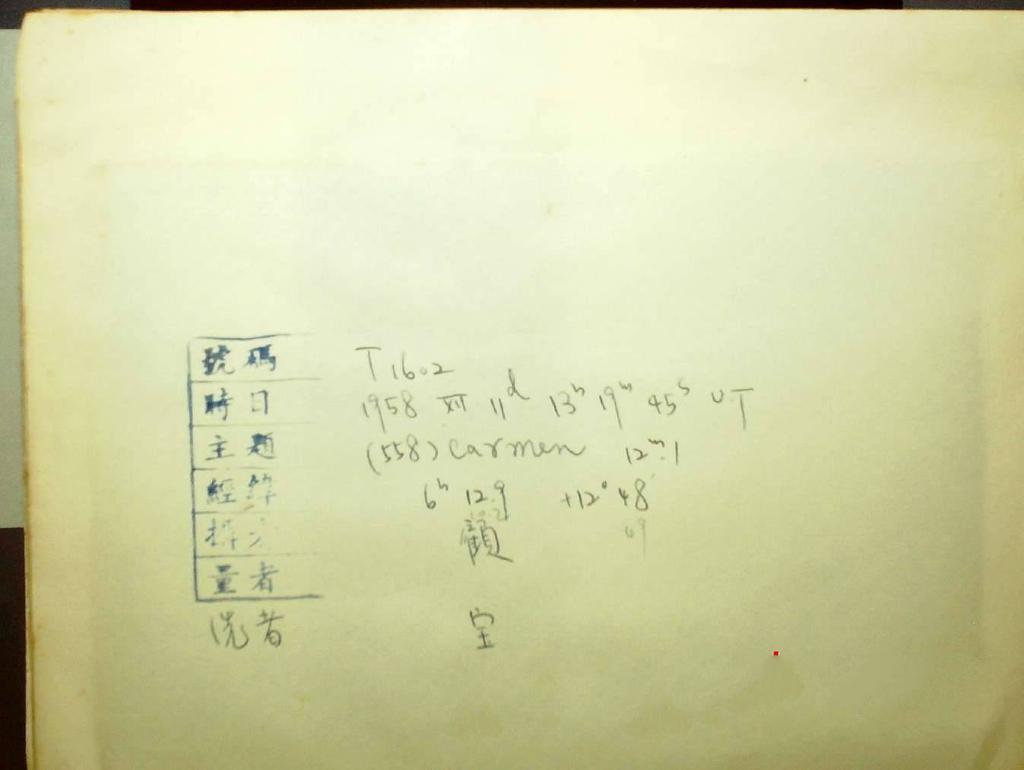 號碼 T 1602
時日 1958 XII 11d 13h 19m 45s UT
主題 (558) Carmen 12m.1
經緯 6h 12.9 +12° 48'
49
顧
量者
洗者 宝